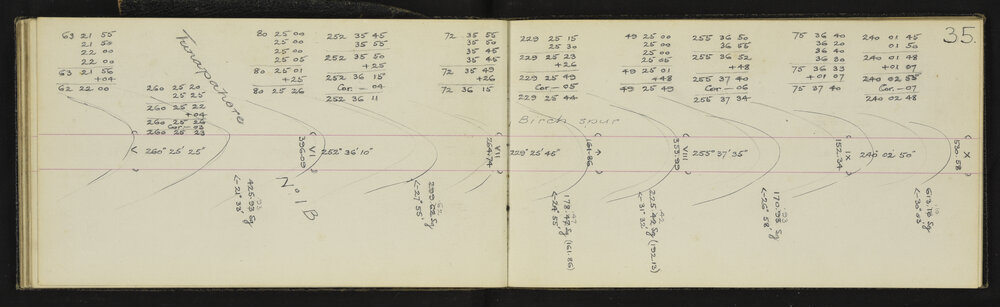 35.
63 21 55
21 50
22 00
22 00
63 21 56
+04
62 22 00
260 25 20
25 25
260 25 22
+04
260 25 26
Cor - 03
260 25 23
80 25 00
25 00
25 00
80 25 01
+25
80 25 26
252 35 45
35 55
35 50
252 35 50
+25
252 36 15
Cor. - 04
252 36 11
72 35 55
35 50
35 45
35 45
72 35 49
+26
72 36 15
V
260° 25' 25"
396.09
VI
252° 36' 10"
264.74
VII
N.o 1B
425.93 Sg
<-21° 33'
<-27° 55'
229 25 15
25 30
229 25 23
+26
229 25 49
Cor. - 05
229 25 44
49 25 00
25 00
25 00
25 05
49 25 01
+48
49 25 49
255 36 50
36 55
255 36 52
+48
255 37 40
Cor - 06
255 37 34
75 36 40
36 20
36 40
36 30
75 36 33
+01 07
75 37 40
240 01 45
01 50
240 01 48
+01 07
240 02 55
Cor. - 07
240 02 48
Birch spur
229° 25' 45"
161.86
353.99
VIII
255° 37' 35"
152.34
IX
240° 02' 50"
530.58
X
178.47 Sg (161.86)
<-24° 55'
225.42 Sg (192.13)
<-31° 32'
170.93 Sg
<-26° 58'
613.16 Sg
<-30° 03'